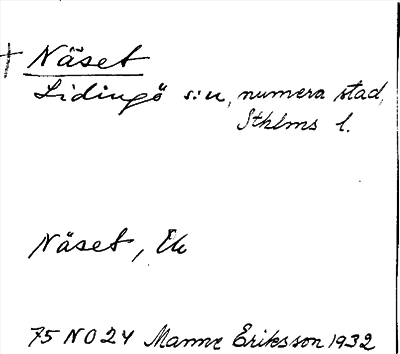 † Näset
Lidingö s:n, numera stad,
Sthlms l.
Näset, Ek
75 NO 24 Manne Eriksson 1932